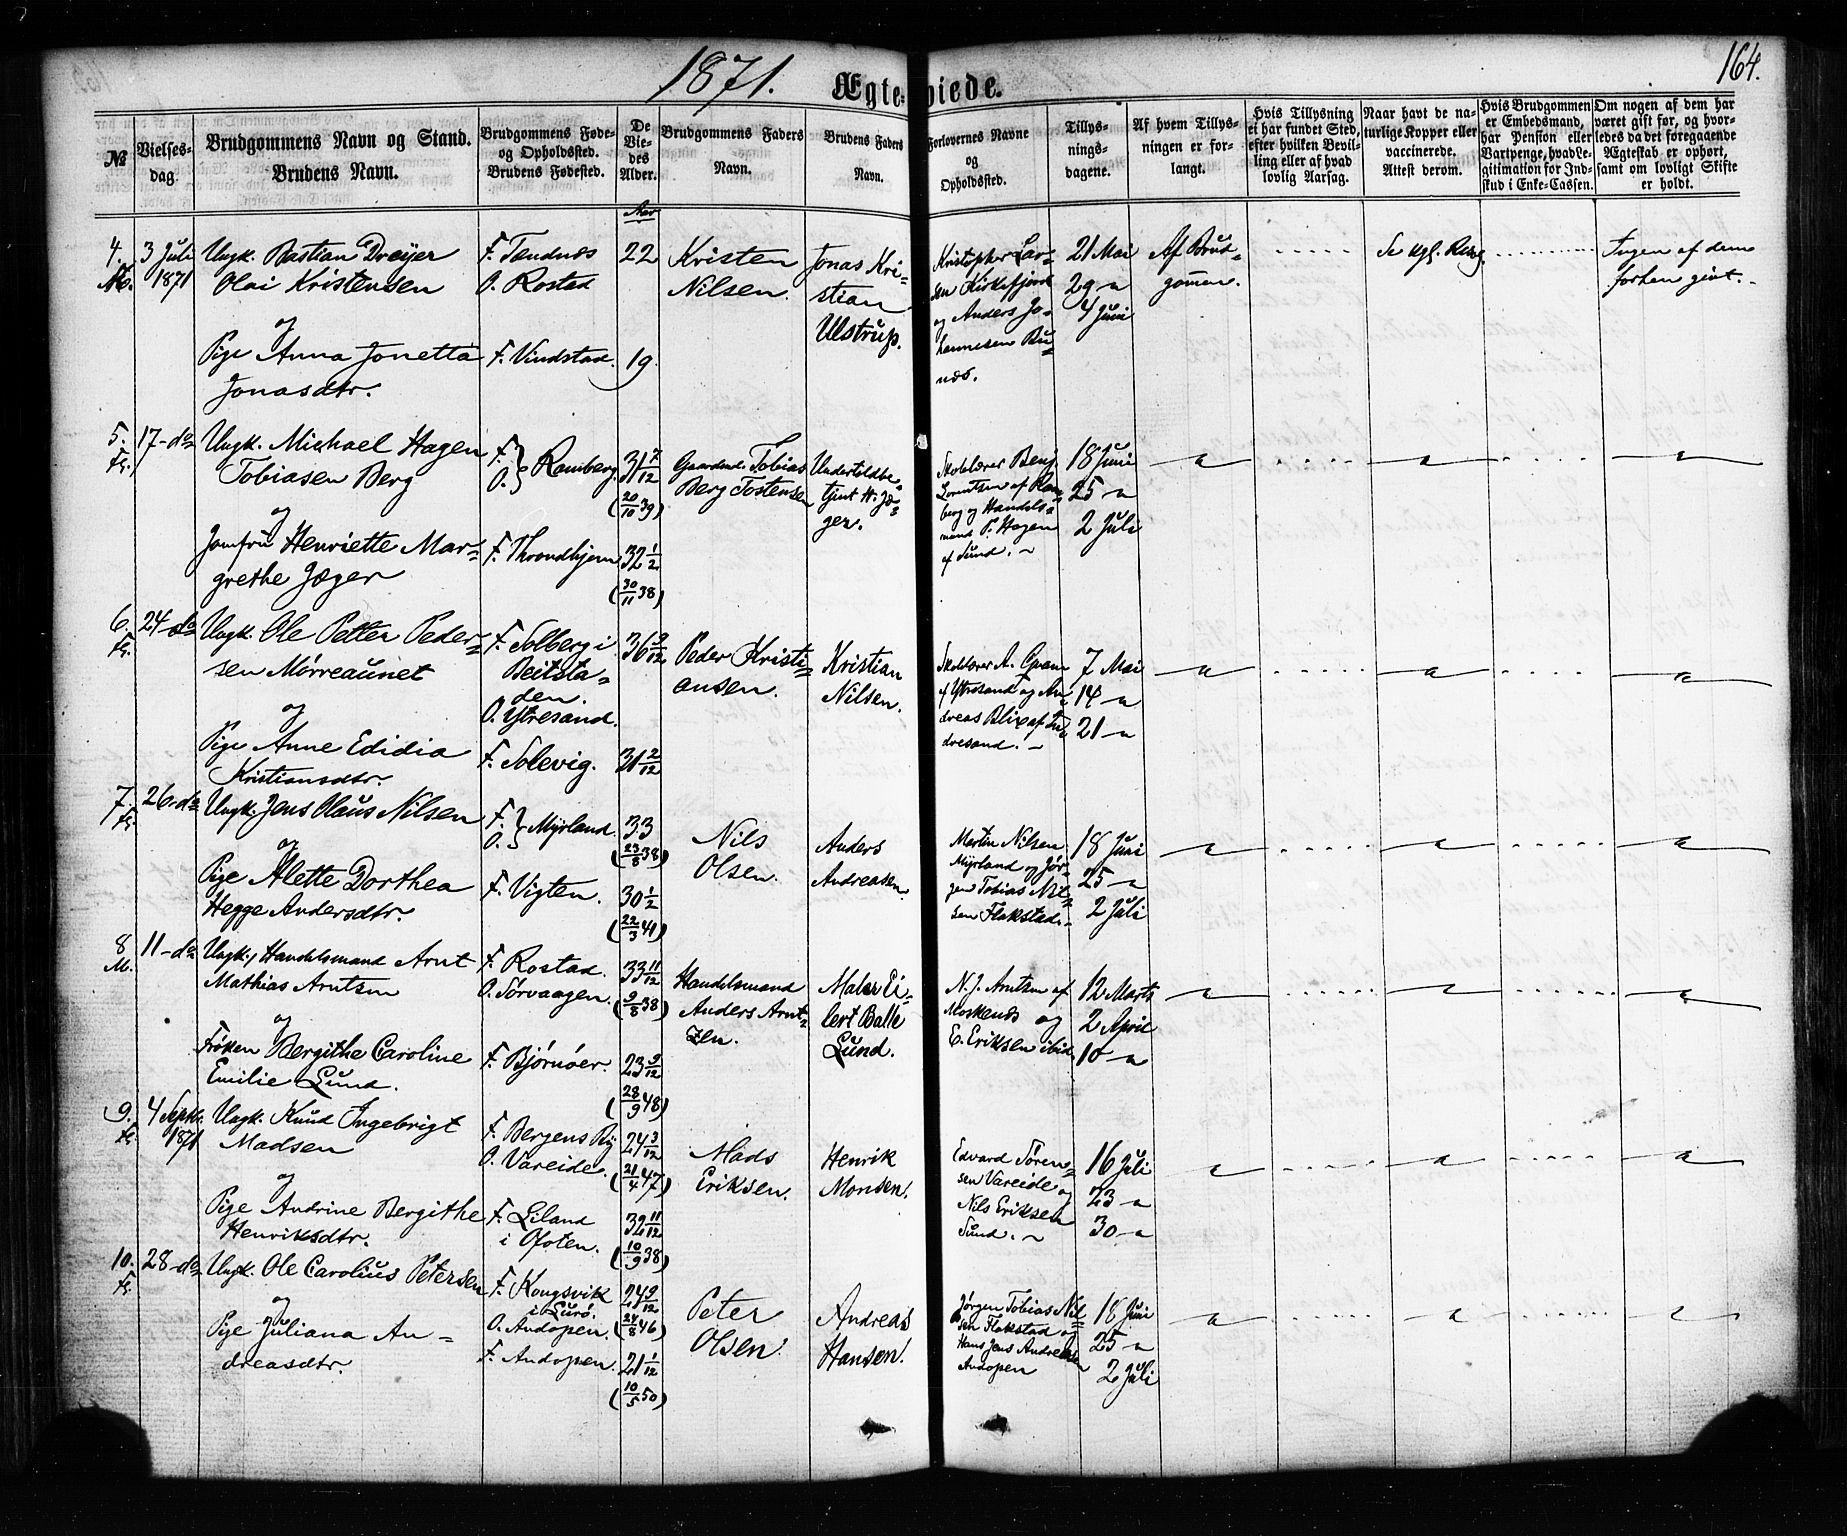 1871. Ægteviede. 164.
№
Vielses-
dag.
Brudgommens Navn og Stand.
Brudens Navn.
Brudgommens Føde-
og Opholdssted.
Brudens Fødested.
De
Vie-
des
Alder.
Brudgommens Faders
Navn.
Brudens Faders
Navn.
Forlovernes Navne
og
Opholdssted.
Tillys-
nings-
dagene.
Af hvem Tillys-
ningen er for-
langt.
Hvis Tillysning
ei har fundet Sted,
efter hvilken Bevil-
ling eller af hvad
lovlig Aarsag.
Naar havt de na-
turlige Kopper eller
vaccinerede.
Attest derom.
Hvis Brudgommen
er Embedsmand,
har Pension eller
Vartpenge, hvad Le-
gitimation for Ind-
skud i Enke-Cassen.
Om nogen af dem har
været gift før, og hvor-
ledes da det foregaaende
Ægteskab er ophørt,
samt om lovligt Skifte
er holdt.
Aar
4.
3 Juli
1871
Ungk. Bastian Dreyer
Olai Kristensen
og
Pige Anna Jonetta
Jonasdtr.
F. Tendnes
O. Rostad
F. Vindstad.
22
19.
Kristen
Nilsen.
Jonas Kri-
stian
Ulstrup.
Kristopher Lar-
sen Kirkefjord
og Anders Jo-
hannesen Bu-
nes.
21 Mai
29 -"-
4 Juni
Af Brud-
gommen.
Se kgl. Resg.
Ingen af dem
forhen givt.
5.
Fl.
17-do
Ungk. Michael Hagen
Tobiasen Berg
og
Jomfru Henriette Mar-
grethe Jæger
F. } Ramberg.
O.
F. Throndhjem
31 7/12
(20/10 39)
32 1/2
(30/11 38)
Gaardmd. Tobias
Berg Tostensen
Undertoldbe-
tjent H. Jæ-
ger.
Skolelærer Benj.
Lorentsen af Ram-
berg og Handels-
mand P. Hagen
af Sund.
18 Juni
25 -"-
2 Juli
6.
Fl.
24-do
Ungk. Ole Petter Peder-
sen Mørreaunet
og
Pige Anne Edidia
Kristiansdtr.
F. Solberg i
Beitsta-
den.
O. Ytresand.
F. Solevig.
36 9/12
31 2/12
Peder Kristi-
ansen.
Kristian
Nilsen.
Skolelærer A. Gram
af Ytresand og An-
dreas Blix af In-
dresand.
7 Mai
14 -"-
21 -"-
7.
Fl.
26-do
Ungk. Jens Olaus Nilsen
og
Pige Alette Dorthea
Hegge Andersdtr.
F. } Myrland.
O.
F. Vigten.
33
(23/8 38)
30 1/2
(22/3 41)
Nils
Olsen.
Anders
Andreasen.
Martin Nilsen
Myrland og Jør-
gen Tobias Nil-
sen Flakstad.
18 Juni
25 -"-
2 Juli
8
M.
11-do
Ungk., Handelsmand Arnt
Mathias Arntsen
og
Frøken Bergithe Caroline
Emilie Lund.
F. Rostad.
O. Sørvaagen.
F. Bjørnøer.
33 11/12
(9/8 38)
23 9/12
(28/9 48)
Handelsmand
Anders Arnt-
zen.
Maler Ei-
lert Balle
Lund.
N. J. Arntsen af
Moskenes og
E. Eriksen ibid.
12 Marts
2 April
10 -"-
9.
Fl.
4 Septbr.
1871
Ungk. Knud Ingebrigt
Madsen
og
Pige Andrine Bergithe
Henriksdtr.
F. Bergens By
O. Vareide.
F. Liland
i Ofoten.
24 3/12
(21/4 47)
32 11/12
(10/9 38)
Mads
Eriksen.
Henrik
Monsen.
Edvard Søren-
sen Vareide og
Nils Eriksen
Sund.
16 Juli
23 -"-
30 -"-
10.
Fl.
28-do
Ungk. Ole Carolius Petersen
og
Pige Juliana An-
dreasdtr.
F. Kongsvik
i Lurø.
O. Andopen.
F. Andopen.
24 9/12
(24/8 46)
21 1/12
(10/5 50)
Peter
Olsen.
Andreas
Hansen.
Jørgen Tobias Nil-
sen Flakstad og
Hans Jens Andreasen
Andopen
18 Juni
25 -"-
2 Juli